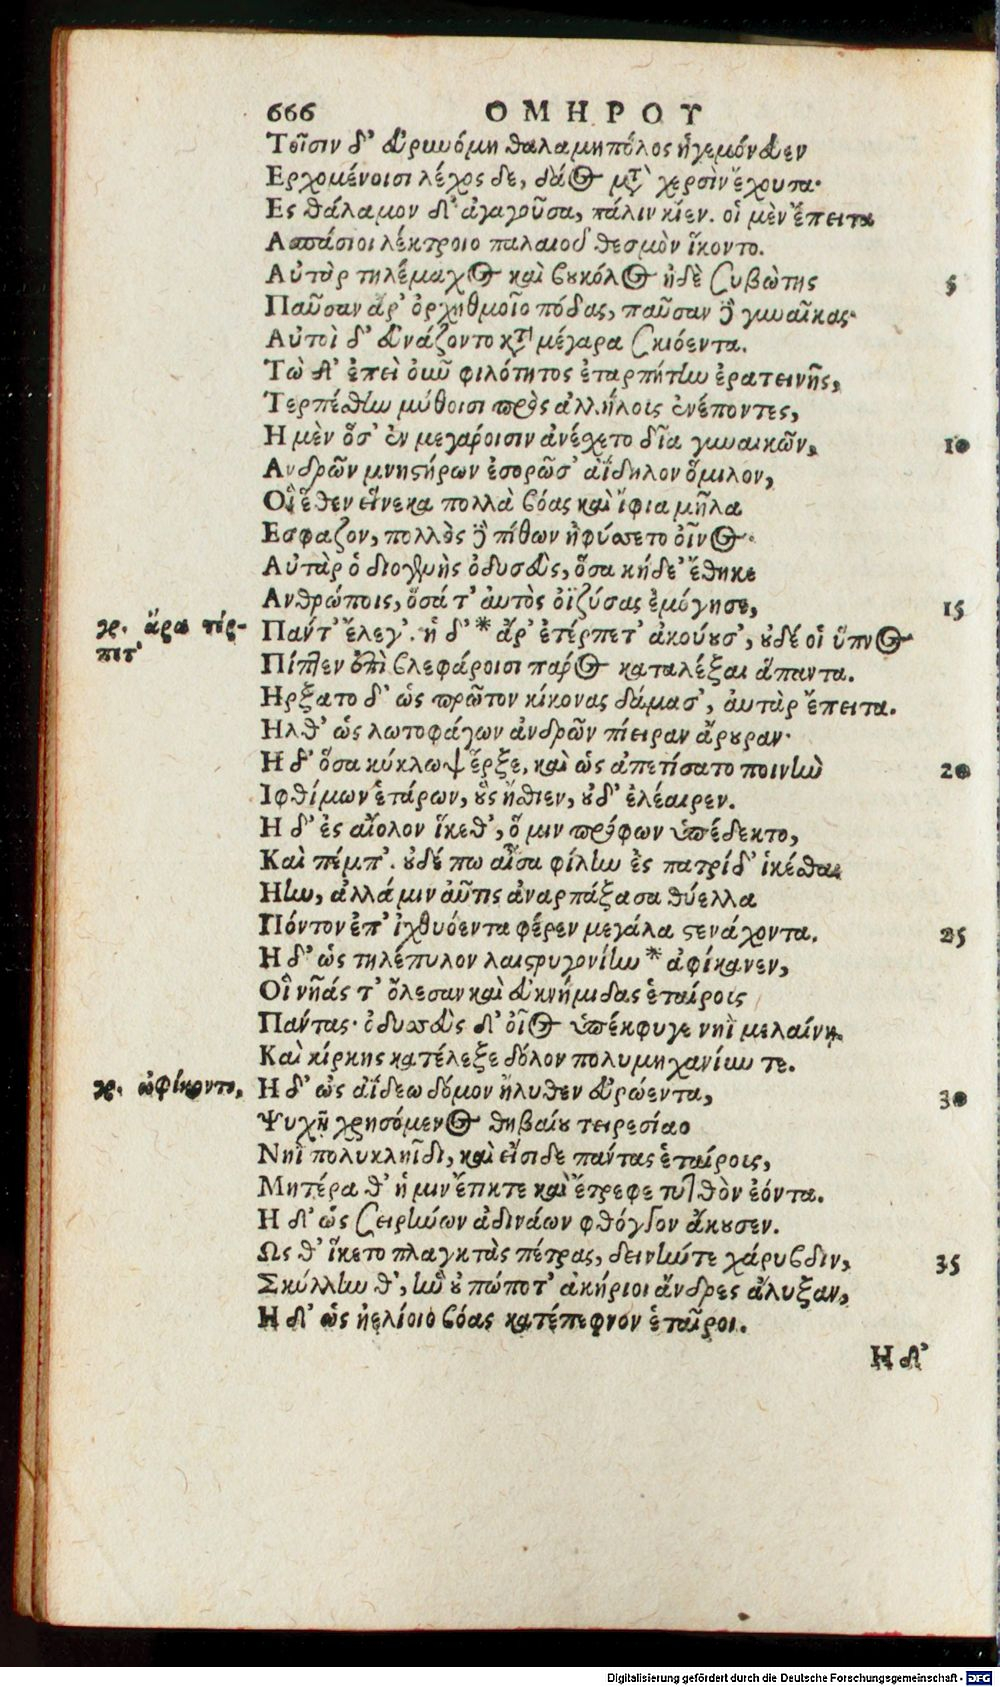 666 ΟΜΗΡΟΥ
Τοῖσιν δ' εὐρυνόμη θαλαμηπόλος ἡγεμόνευεν
Ερχομένοισι λέχος δε, δάος μετὰ χερσὶν ἔχουσα·
Ες θάλαμον δ' ἀγαγοῦσα, πάλιν κίεν. οἱ μὲν ἔπειτα
Ασπάσιοι λέκτροιο παλαιοῦ θεσμὸν ἵκοντο.
Αὐτὰρ τηλέμαχος καὶ βουκόλος ἠδὲ συβώτης 5
Παῦσαν ἄρ' ὀρχηθμοῖο πόδας, παῦσαν δὲ γυναῖκας·
Αὐτοὶ δ' εὐνάζοντο κατὰ μέγαρα σκιόεντα.
Τὼ δ' ἐπεὶ οὖν φιλότητος ἐταρπήτην ἐρατεινῆς,
Τερπέσθην μύθοισι πρὸς ἀλλήλοις ἐνέποντες,
Η μὲν ὅσ' ἐν μεγάροισιν ἀνέσχετο δῖα γυναικῶν, 10
Ανδρῶν μνηστήρων ἐσορῶσ' ἀΐδηλον ὅμιλον,
Οἳ ἕθεν εἵνεκα πολλὰ βόας καὶ ἴφια μῆλα
Εσφαζον, πολλὸς δὲ πίθων ἠφύσσετο οἶνος·
Αὐτὰρ ὁ διογενὴς ὀδυσεὺς, ὅσα κήδε' ἔθηκε
Ανθρώποις, ὅσά τ' αὐτὸς ὀϊζύσας ἐμόγησε, 15
γρ. ἄρα τέρ-
πετ'
Πάντ' ἔλεγ'. ἡ δ' * ἄρ' ἐτέρπετ' ἀκούουσ', οὐδέ οἱ ὕπνος
Πίπτεν ἐπὶ βλεφάροισι πάρος καταλέξαι ἅπαντα.
Ηρξατο δ' ὡς πρῶτον κίκονας δάμασ', αὐτὰρ ἔπειτα.
Ηλθ' ὡς λωτοφάγων ἀνδρῶν πίειραν ἄρουραν·
Η δ' ὅσα κύκλωψ ἔρξε, καὶ ὡς ἀπετίσατο ποινὴν 20
Ιφθίμων ἑτάρων, οὓς ἤσθιεν, οὐδ' ἐλέαιρεν.
Η δ' ἐς αἴολον ἵκεθ', ὅ μιν πρόφρων ὑπέδεκτο,
Καὶ πέμπ'. οὐδέ πω αἶσα φίλην ἐς πατρίδ' ἱκέσθαι
Ηην, ἀλλά μιν αὖτις ἀναρπάξασα θύελλα
Πόντον ἐπ' ἰχθυόεντα φέρεν μεγάλα στενάχοντα. 25
Η δ' ὡς τηλέπυλον λαιστρυγονίην * ἀφίκανεν,
Οἳ νῆάς τ' ὄλεσαν καὶ εὐκνήμιδας ἑταίροις
Πάντας· ὀδυσσεὺς δ' οἶος ὑπέκφυγε νηῒ μελαίνῃ.
Καὶ κίρκης κατέλεξε δόλον πολυμηχανίην τε.
γρ. ὠφίκοντο,
Η δ' ὡς ἀΐδεω δόμον ἤλυθεν εὐρώεντα, 30
Ψυχῇ χρησόμενος θηβαίου τειρεσίαο
Νηῒ πολυκληῗδι, καὶ εἴσιδε πάντας ἑταίροις,
Μητέρα θ' ἥ μιν ἔτικτε καὶ ἔτρεφε τυτθὸν ἐόντα.
Η δ' ὡς σειρήνων ἀδινάων φθόγγον ἄκουσεν.
Ως θ' ἵκετο πλαγκτὰς πέτρας, δεινήν τε χάρυβδιν, 35
Σκύλλην θ', ἣν οὐ πώποτ' ἀκήριοι ἄνδρες ἄλυξαν,
Η δ' ὡς ἠελίοιο βόας κατέπεφνον ἑταῖροι.
Η δ'
Digitalisierung gefördert durch die Deutsche Forschungsgemeinschaft - DFG